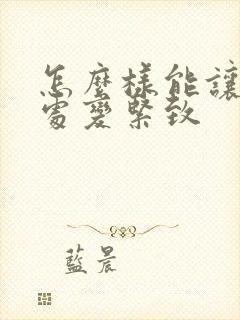 怎麼樣能讓
處變緊致
藍晨